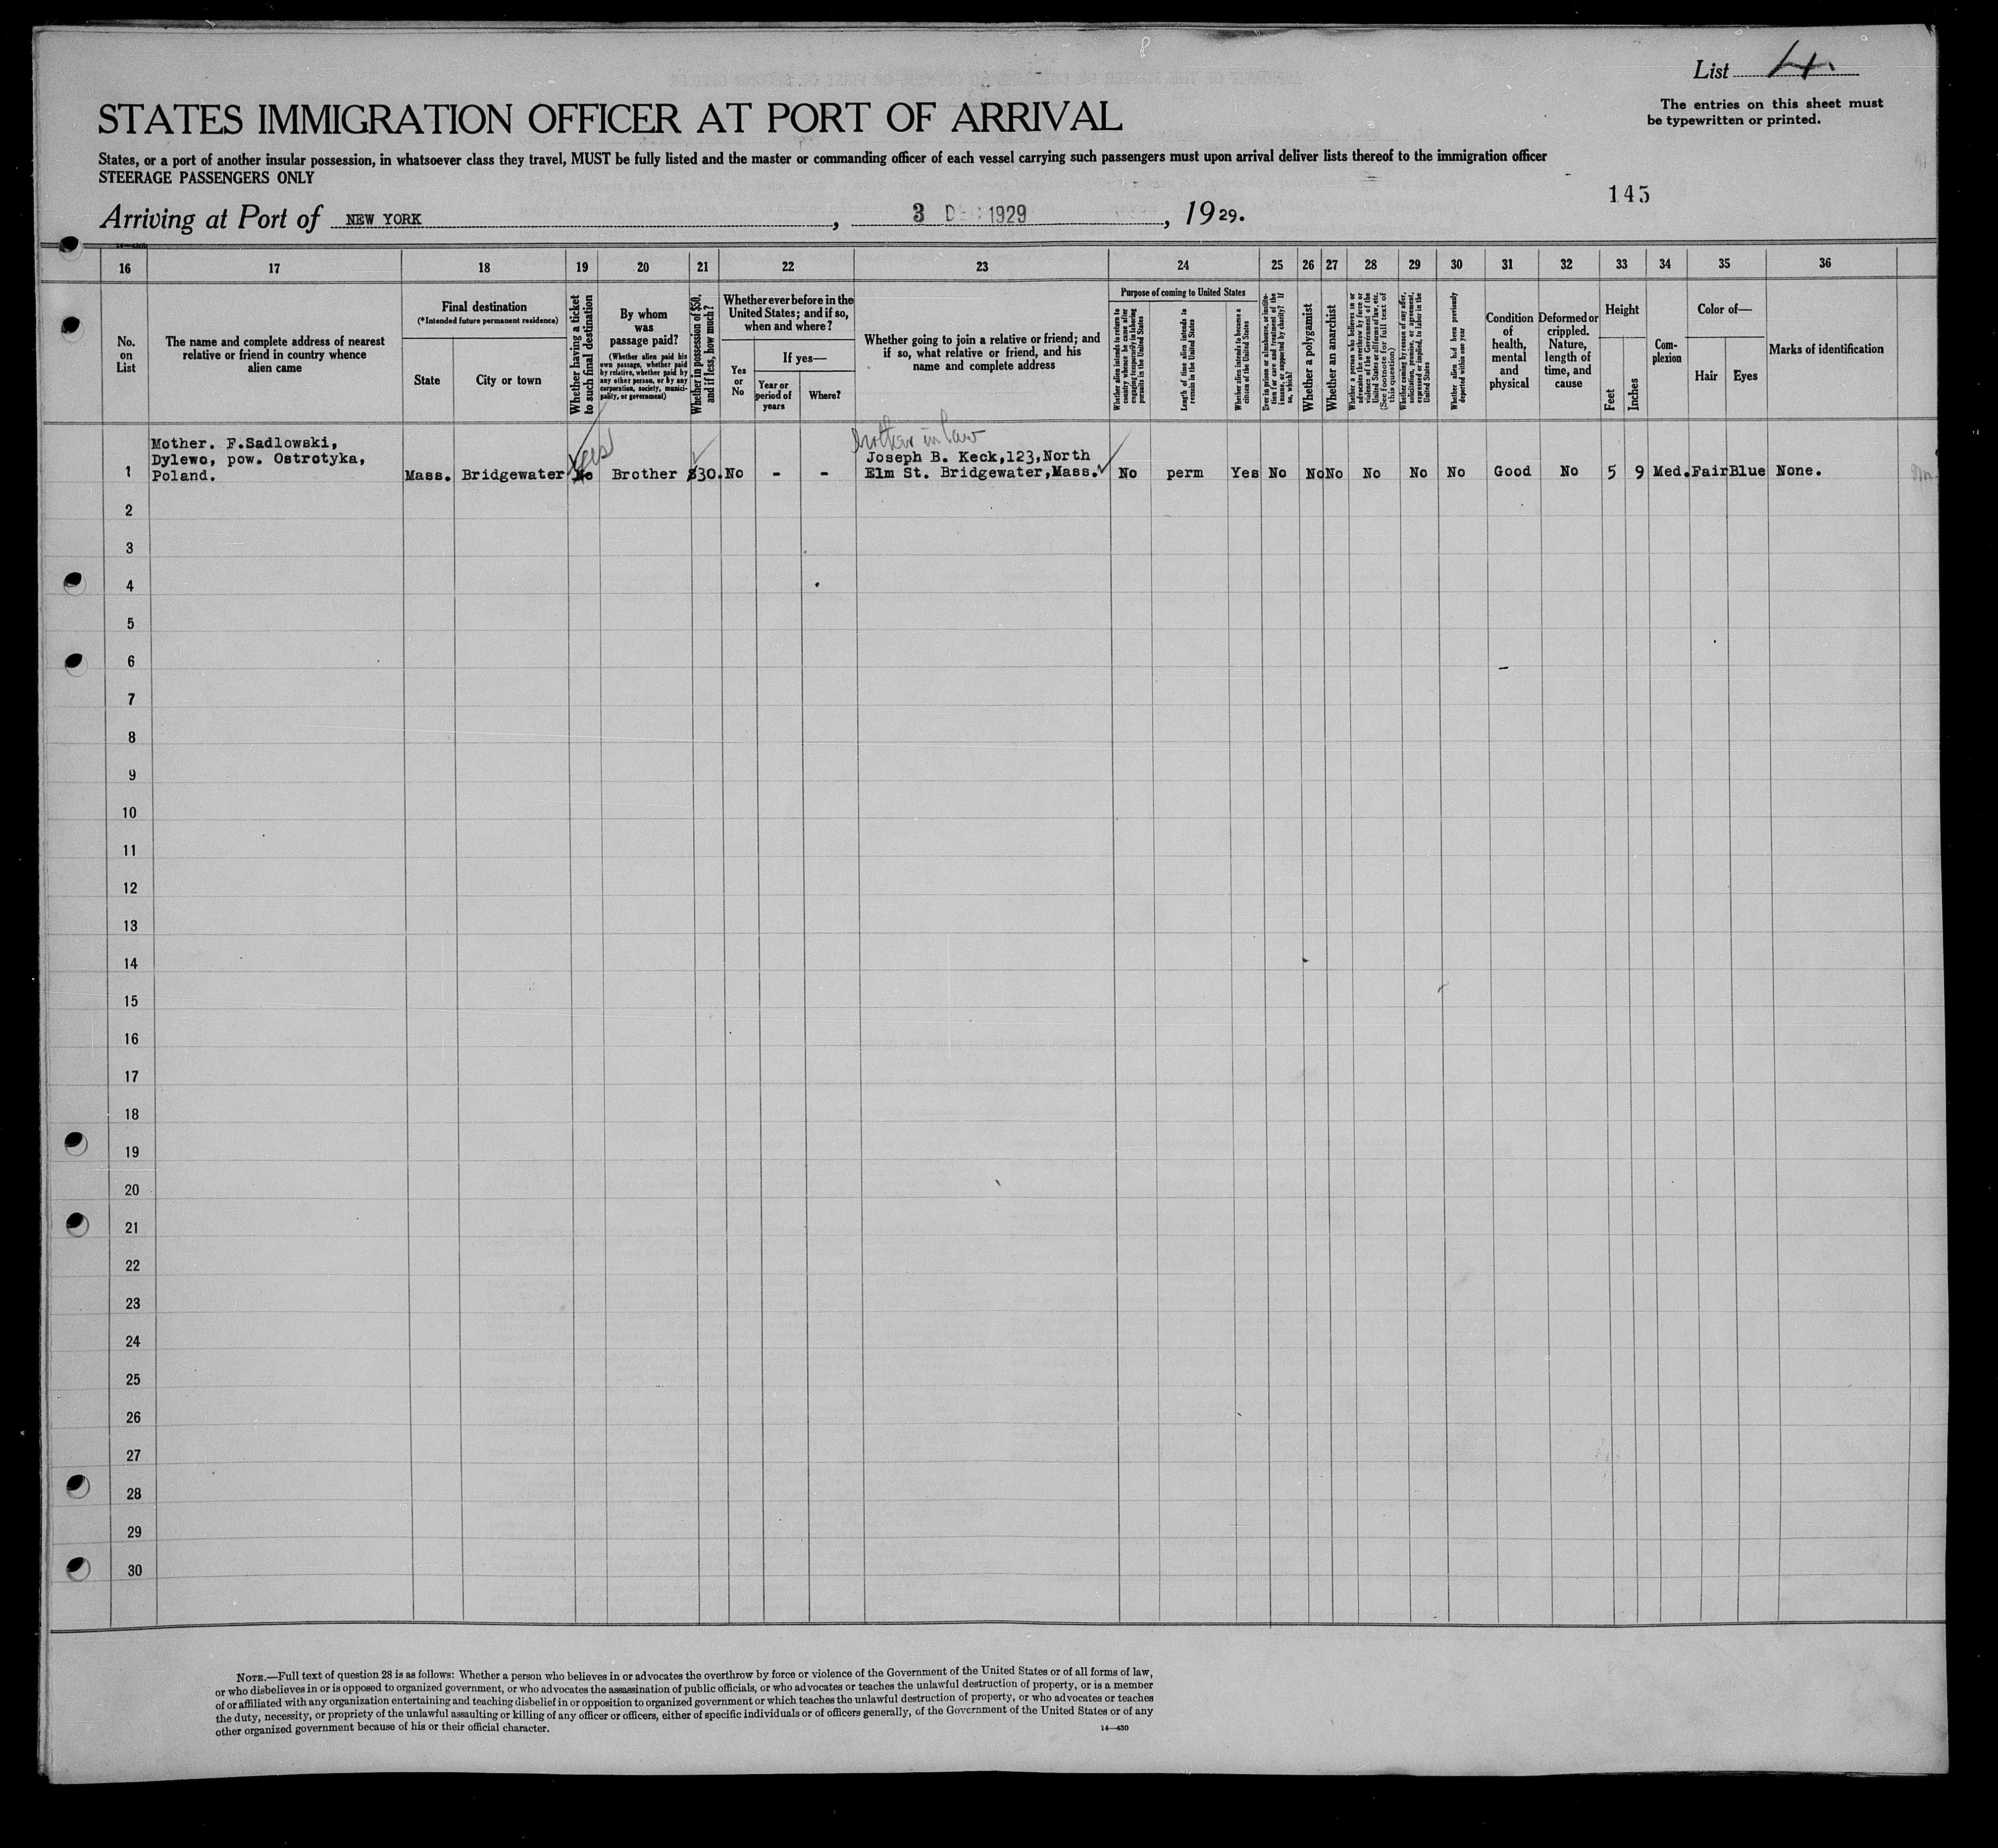 List 4.
The entries on this sheet must
be typewritten or printed.
STATES IMMIGRATION OFFICER AT PORT OF ARRIVAL
States, or a port of another insular possession, in whatsoever class they travel, MUST be fully listed and the master or commanding officer of each vessel carrying such passengers must upon arrival deliver lists thereof to the immigration officer
STEERAGE PASSENGERS ONLY
145
Arriving at Port of NEW YORK, 3 DEC 1929, 1929.
16 17 18 19 20 21 22 23 24 25 26 27 28 29 30 31 32 33 34 35 36
No.
on
List
The name and complete address of nearest
relative or friend in country whence
alien came
Final destination
(*Intended future permanent residence)
State
City or town
Whether having a ticket
to such final destination
By whom
was
passage paid?
(Whether alien paid his
own passage, whether paid
by relative, whether paid by
any other person, or by any
corporation, society, munici-
pality, or government)
Whether in possession of $50,
and if less, how much?
Whether ever before in the
United States; and if so,
when and where?
Yes
or
No
If yes—
Year or
period of
years
Where?
Whether going to join a relative or friend; and
if so, what relative or friend, and his
name and complete address
Purpose of coming to United States
Whether alien intends to return to
country whence he came after
engaging temporarily in laboring
pursuits in the United States
Length of time alien intends to
remain in the United States
Whether alien intends to become a
citizen of the United States
Ever in prison or almshouse, or institu-
tion for care and treatment of the
insane, or supported by charity? If
so, which?
Whether a polygamist
Whether an anarchist
Whether a person who believes in or
advocates the overthrow by force or
violence of the Government of the
United States or all forms of law, etc.
(See footnote for full text of
this question)
Whether coming by reason of any offer,
solicitation, promise, or agreement,
expressed or implied, to labor in the
United States
Whether alien had been previously
deported within one year
Condition
of
health,
mental
and
physical
Deformed or
crippled.
Nature,
length of
time, and
cause
Height
Feet
Inches
Com-
plexion
Color of—
Hair
Eyes
Marks of identification
Mother. F.Sadlowski,
Dylewo, pow. Ostrotyka,
Poland.
yes
brother in law
Joseph B. Keck,123,North
Elm St. Bridgewater,Mass.
1 Mass. Bridgewater No Brother $30. No - - No perm Yes No No No No No No Good No 5 9 Med. Fair Blue None.
2
3
4
5
6
7
8
9
10
11
12
13
14
15
16
17
18
19
20
21
22
23
24
25
26
27
28
29
30
NOTE.—Full text of question 28 is as follows: Whether a person who believes in or advocates the overthrow by force or violence of the Government of the United States or of all forms of law,
or who disbelieves in or is opposed to organized government, or who advocates the assassination of public officials, or who advocates or teaches the unlawful destruction of property, or is a member
of or affiliated with any organization entertaining and teaching disbelief in or opposition to organized government or which teaches the unlawful destruction of property, or who advocates or teaches
the duty, necessity, or propriety of the unlawful assaulting or killing of any officer or officers, either of specific individuals or of officers generally, of the Government of the United States or of any
other organized government because of his or their official character.
14—430